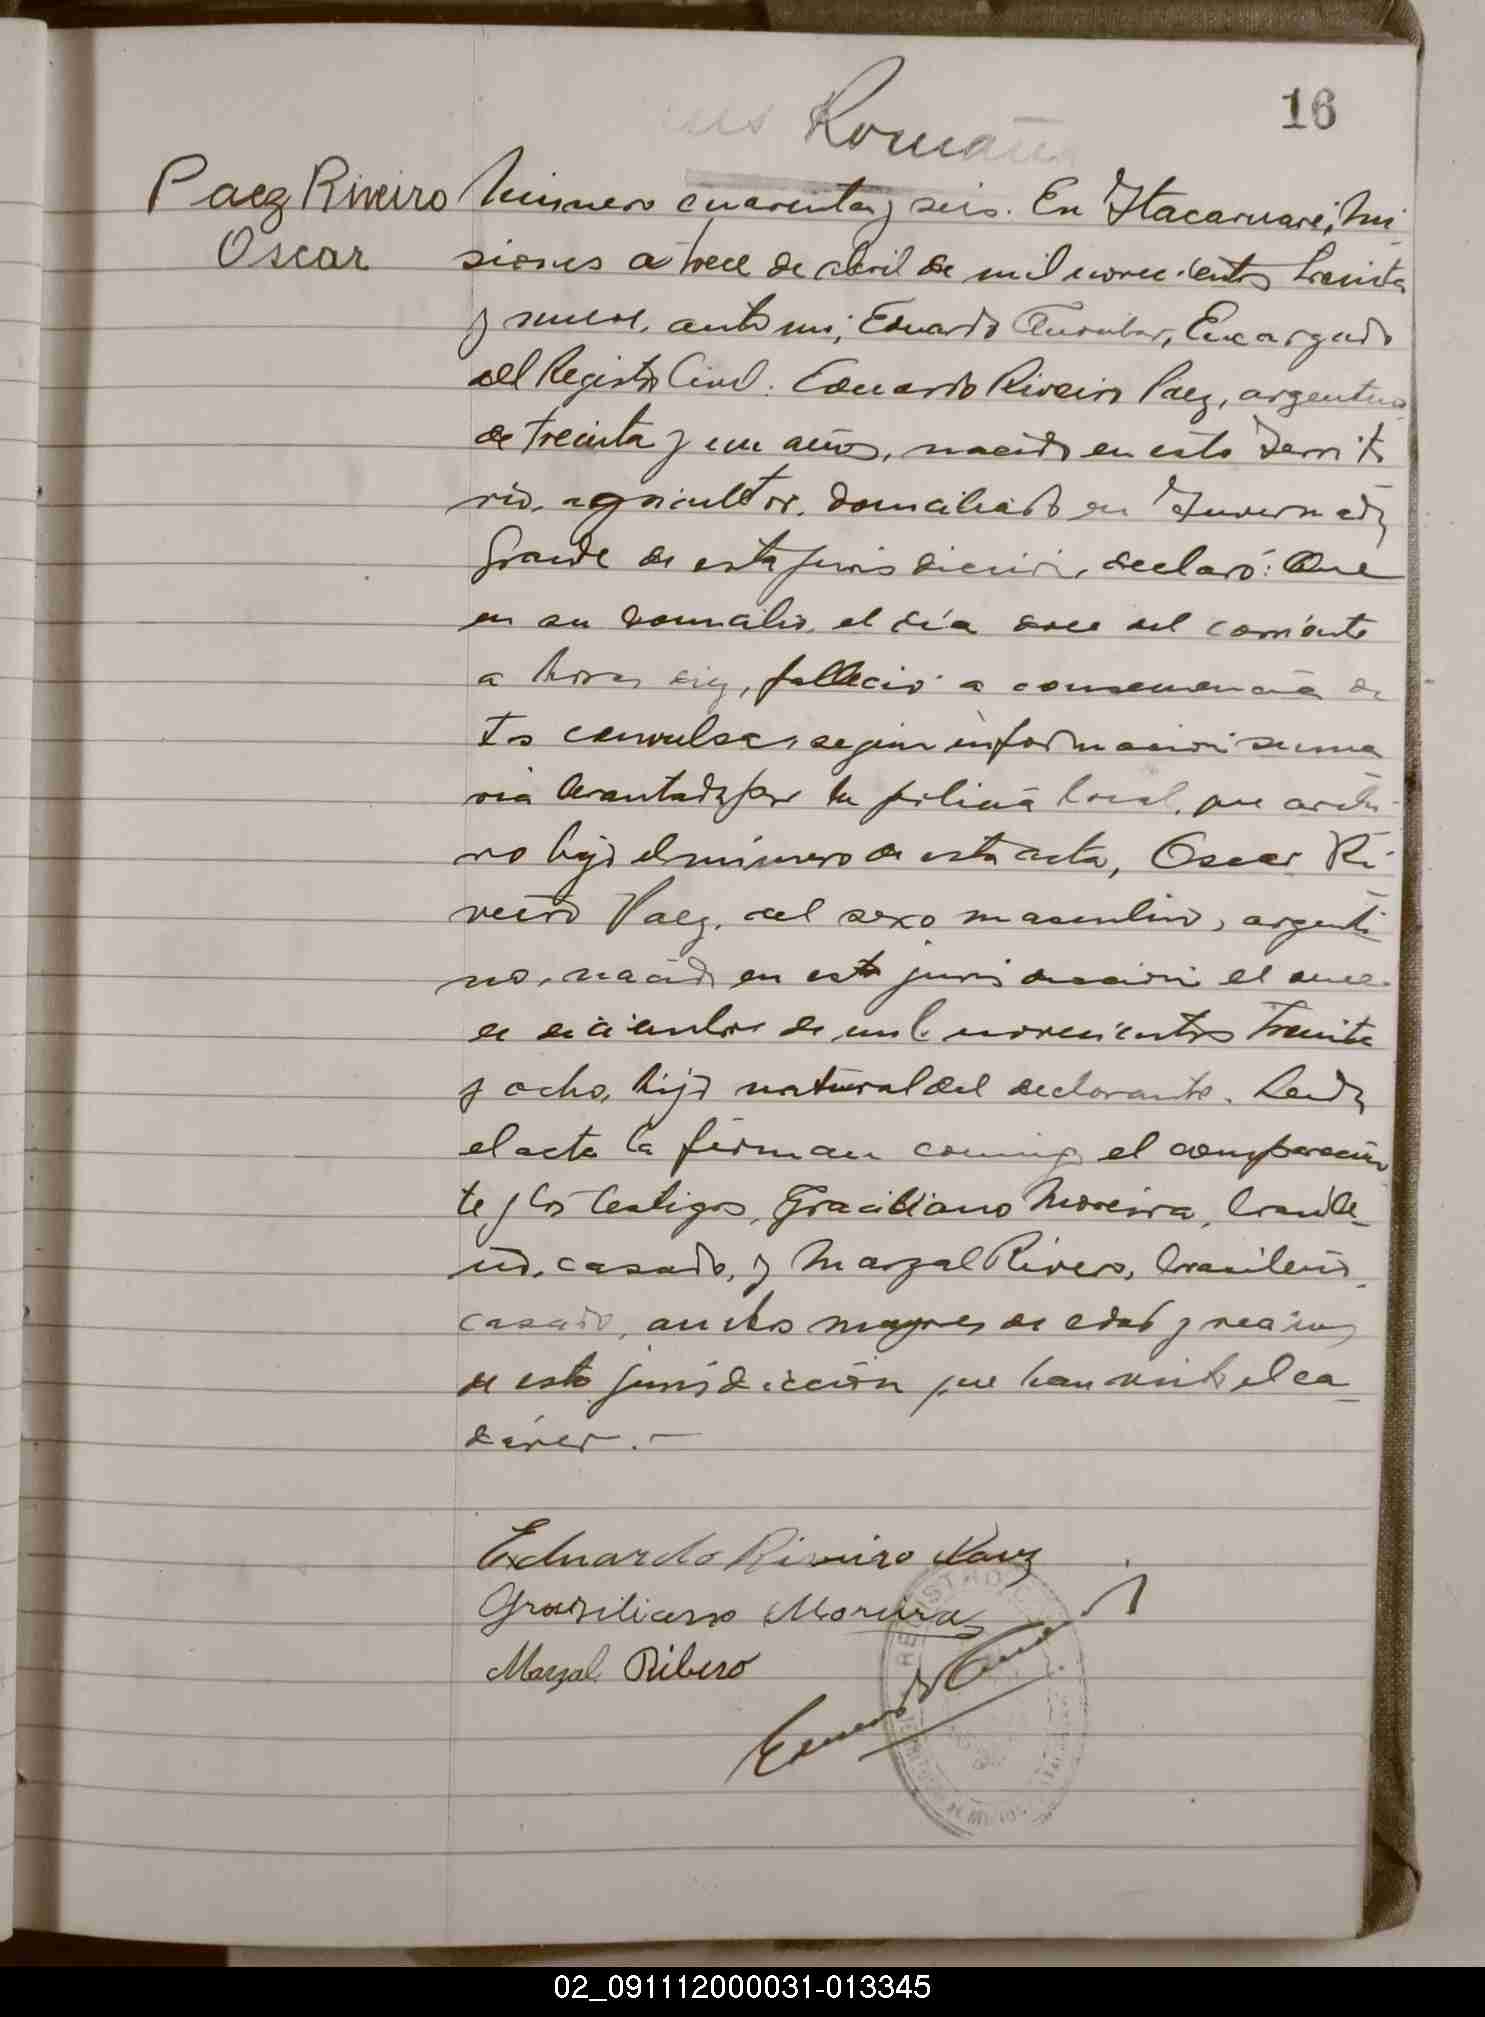 16
Romaña
Paez Riveiro
Oscar
Número cuarenta y seis. En Itacaruaré, Mi-
siones a trece de abril de mil novecientos treinta
y nueve, ante mi, Eduardo Encargado
del Registro Civil. Eduardo Riveiro Paez, argentino
de treinta y un años, nacido en este Territo
rio, agricultor, domiciliado en Invernada
Grande de esta jurisdicción, declaró: Que
en su domicilio, el día doce del corriente
a horas diez, falleció a consecuencia de
tos convulsa, según información suma
ria levantada por la policia local, que archi-
vo bajo el número de esta acta, Oscar Ri-
veiro Paez, del sexo masculino, argenti
no, nacido en esta jurisdicción el
de diciembre de mil novecientos treinta
y ocho, hijo natural del declarante. Leida
el acta la firman conmigo el comparecien
te y los testigos, Graciliano Moreira, brasile-
ño, casado, y Marzal Rivero, brasileño,
casado, ambos mayores de edad y vecinos
de esta jurisdicción que han visto el ca-
dáver.-
Eduardo Riveiro Paez
Grasiliano Moreira
Marzal Ribero
Eduardo
REGISTRO
02_091112000031-013345